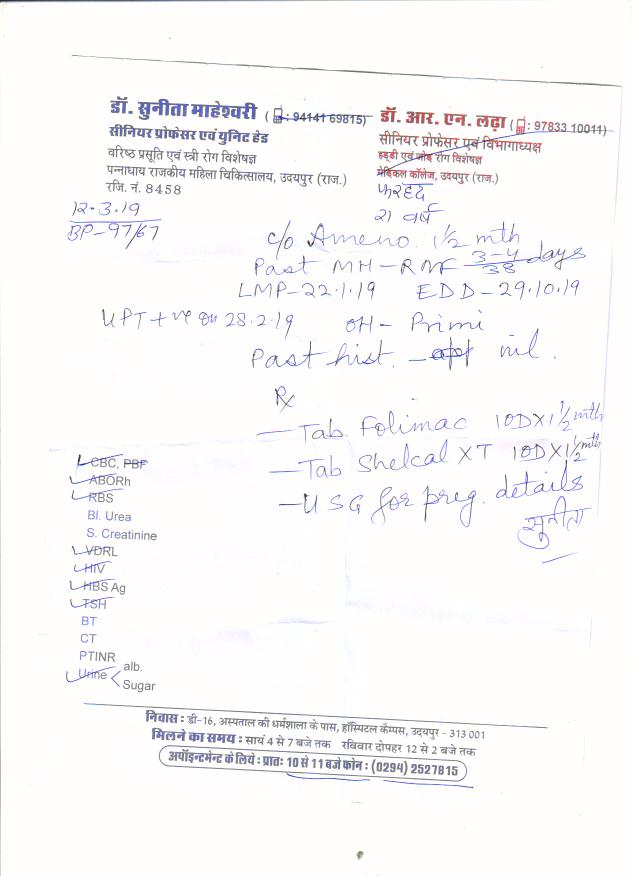 डॉ. सुनीता माहेश्वरी ( : 94141 69815)
सीनियर प्रोफेसर एवं यूनिट हेड
वरिष्ठ प्रसूति एवं स्त्री रोग विशेषज्ञ
पन्नाधाय राजकीय महिला चिकित्सालय, उदयपुर (राज.)
रजि. नं. 8458
डॉ. आर. एन. लढ़ा ( : 97833 10011)
सीनियर प्रोफेसर एवं विभागाध्यक्ष
हड्डी एवं जोड़ रोग विशेषज्ञ
मेडिकल कॉलेज, उदयपुर (राज.)
फरहद
21 वर्ष
12.3.19
BP-97/67
c/o Ameno. 1 1/2 mth
Past MH-RMF 3-4/38 days
LMP-22.1.19 EDD-29.10.19
UPT +ve on 28.2.19 OH- Primi
Past hist. - nil.
Rx
-Tab. Folimac 10DX1 1/2 mth
-Tab Shelcal XT 10DX1 1/2 mth
-USG for preg. details
सुनीता
CBC, PBF
ABORh
RBS
Bl. Urea
S. Creatinine
VDRL
HIV
HBS Ag
TSH
BT
CT
PTINR
Urine < alb.
Sugar
निवास : डी-16, अस्पताल की धर्मशाला के पास, हॉस्पिटल कैम्पस, उदयपुर - 313 001
मिलने का समय : सायं 4 से 7 बजे तक रविवार दोपहर 12 से 2 बजे तक
अपॉइन्टमेन्ट के लिये : प्रातः 10 से 11 बजे फोन : (0294) 2527815